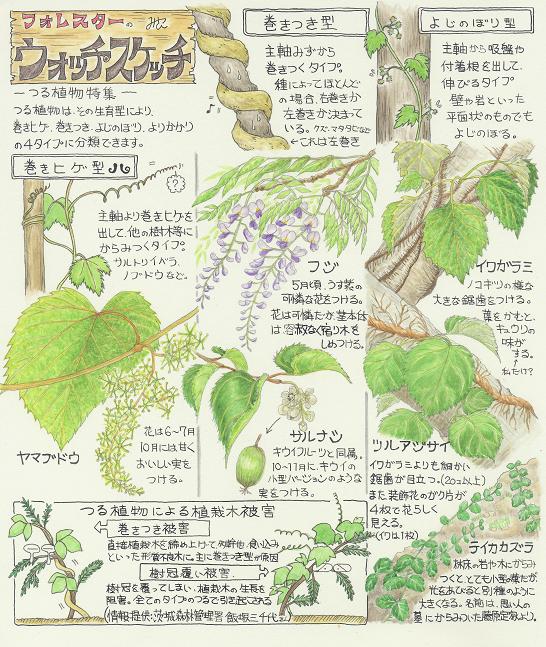 フォレスターの みねこ
ウォッチスケッチ
～つる植物特集～
つる植物は、その生育型により、
巻きヒゲ、巻きつき、よじのぼり、よりかかり
の4タイプに分類できます。
巻きつき型
主軸みずから
巻きつくタイプ。
種によってほとんど
の場合、右巻きか
左巻きか決まって
いる。クズ・マタタビなど
←これは左巻き
よじのぼり型
主軸から吸盤や
付着根を出して、
伸びるタイプ
壁や岩といった
平面状のものでも
よじのぼる。
巻きヒゲ型
?
主軸より巻きヒゲを
出して、他の樹木等に
からみつくタイプ。
サルトリイバラ、
ノブドウなど。
フジ
5月頃、うす紫の
可憐な花をつける。
花は可憐だか、茎本体
は容赦なく宿り木を
しめつける。
イワガラミ
ノコギリの様な
大きな鋸歯をつける。
葉をかむと、
キュウリの
味が
する。
↑
私だけ?
ヤマブドウ
花は6～7月
10月には甘く
おいしい実を
つける。
サルナシ
キウイフルーツと同属。
10～11月に、キウイの
小型バージョンのような
実をつける。
ツルアジサイ
イワガラミよりも細かい
鋸歯が目立つ。(20コ以上)
また、装飾花のガク片が
4枚で花らしく
見える。
(イワは1枚)
テイカカズラ
林床の岩や木にからみ
つくと、とても小さな葉だが
光をあびると別種のように
大きくなる。名前は、思い人の
墓にからみついた藤原定家より。
つる植物による植栽木被害
巻きつき被害
直接植栽木を締め上げて、幹折他、食い込み
といった形質不良木に。主に巻きつき型が原因
樹冠覆い被害
樹冠を覆ってしまい、植栽木の生長を
阻害。全てのタイプのつるで引き起こされる
(情報提供：茨城森林管理署 飯塚三千代さん)